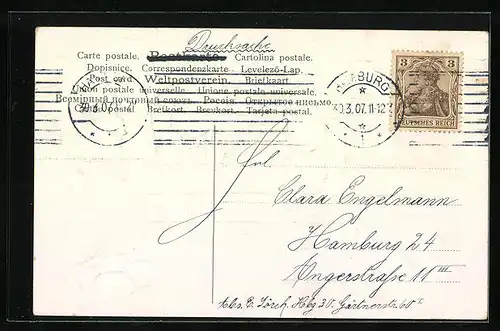 Drucksache
Carte postale. Postkarte. Cartolina postale.
Dopisnice. Correspondenzkarte. Levelező-Lap.
Post card. Weltpostverein. Briefkaart.
Union postale universelle. Unione postale universale.
Всемірный почтовый союзъ. Россія. Открытое письмо.
postal. Brefkort. Brevkort. Tarjeta postal.
30.3.07.
HAMBURG
30.3.07.11-12
3 3
DEUTSCHES REICH
Frl.
Clara Engelmann
Hamburg 24
Angerstraße 11 III
Abs. E. Lörch Hbg 30. Gärtnerstr. 60 I